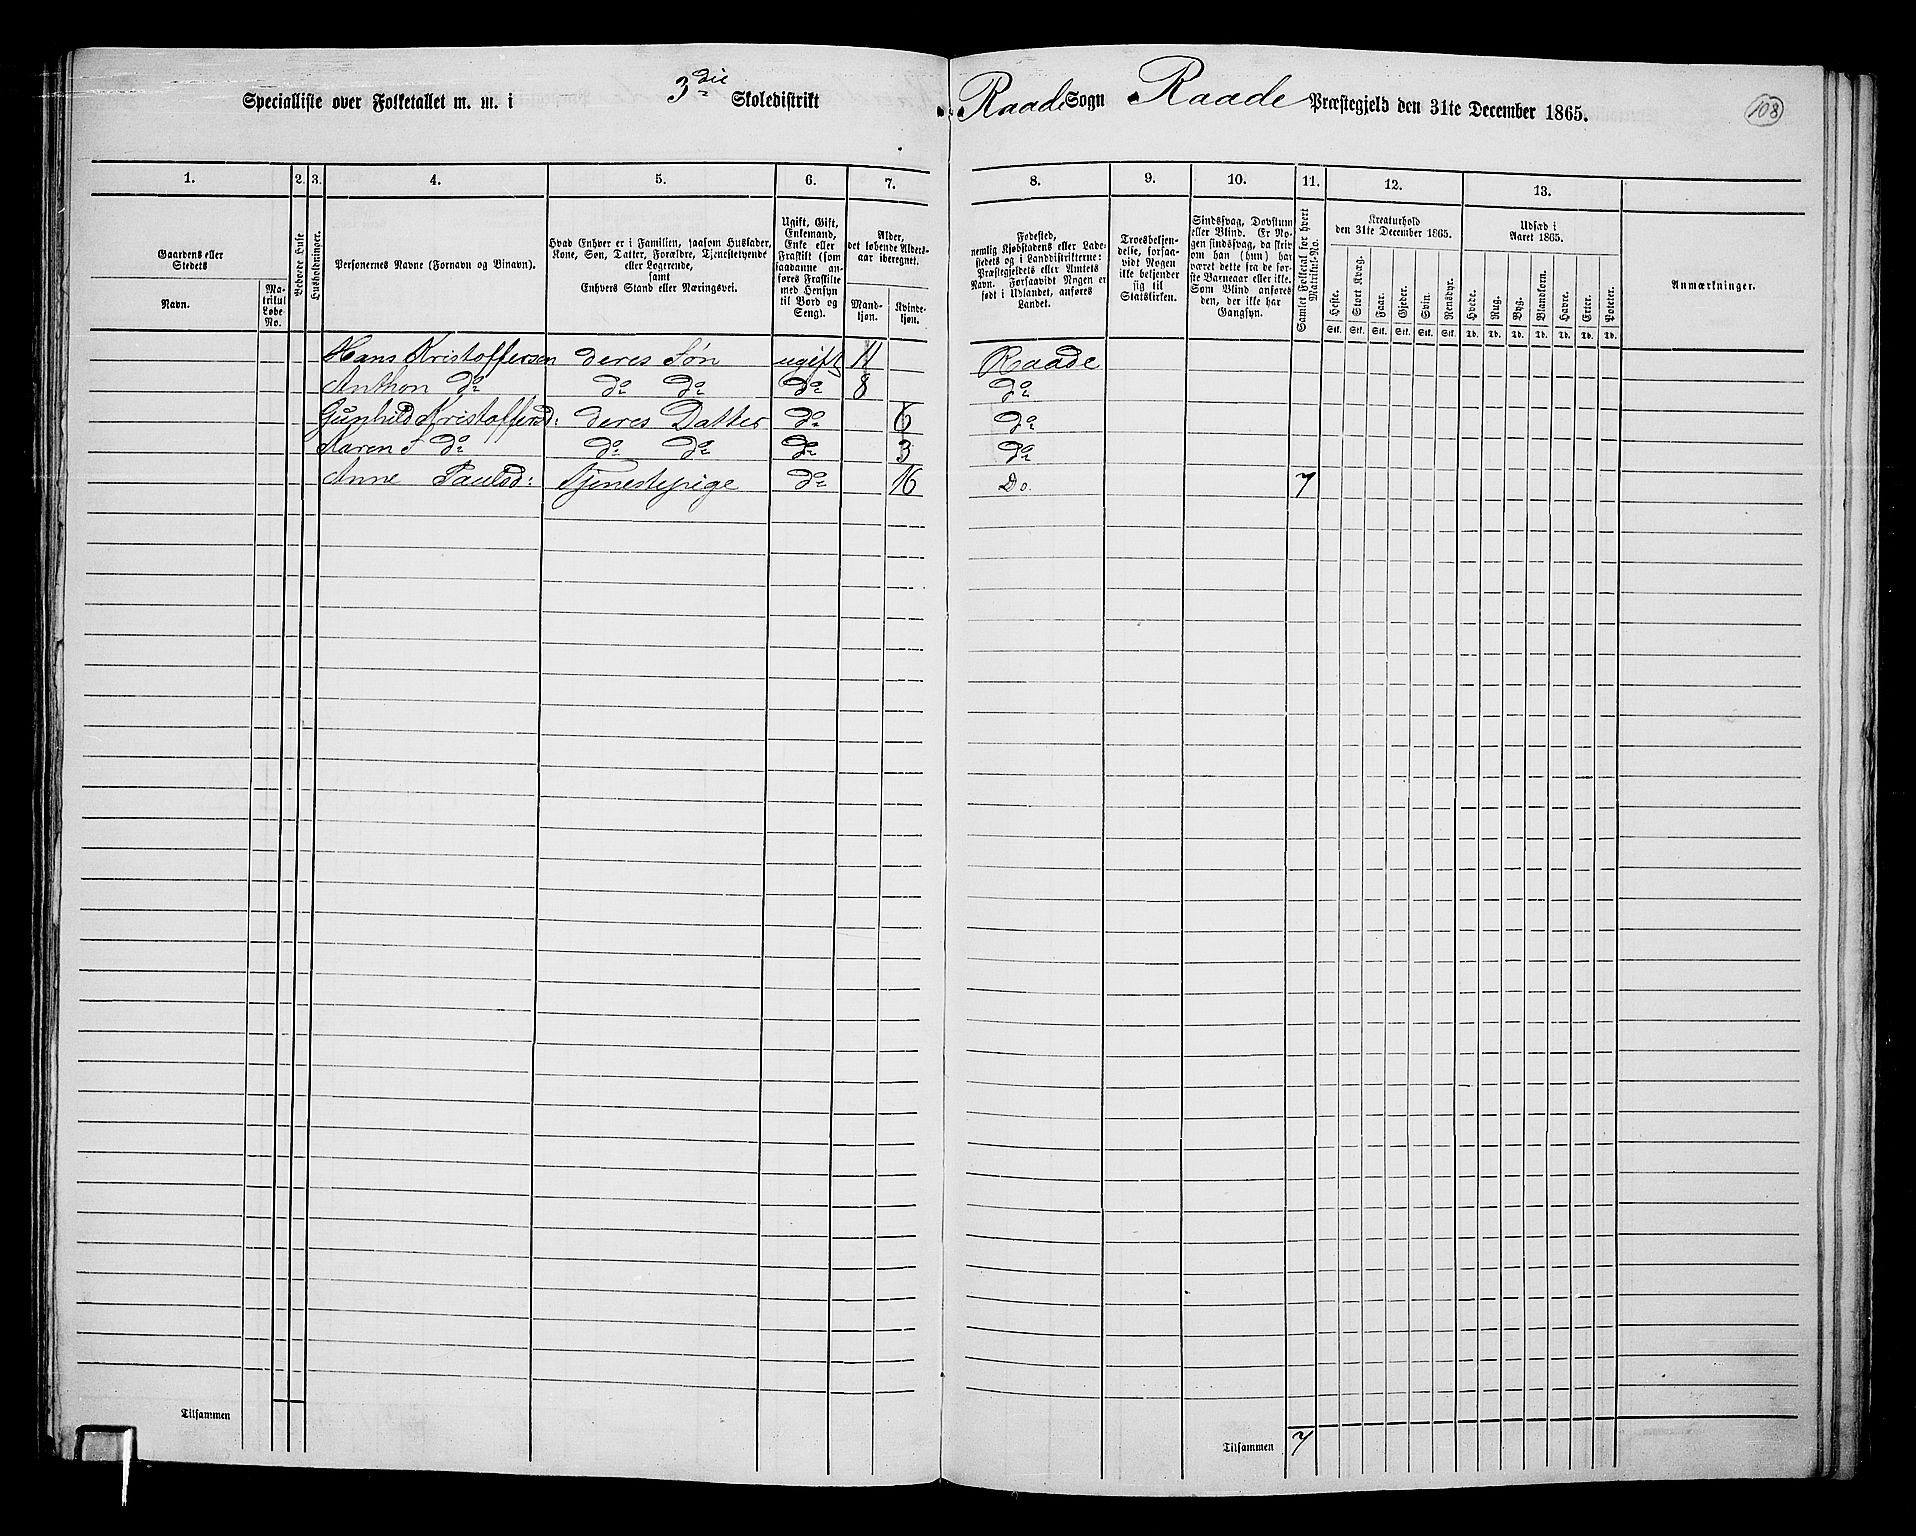 Specialliste over Folketallet m. m. i 3die Skoledistrikt Raade Sogn Raade Præstegjeld den 31te December 1865. 108
1. 2. 3. 4. 5. 6. 7. 8. 9. 10. 11. 12. 13.
Gaardens eller Stedets
Navn.
Matrikul Løbe-No.
Beboede Huse
Husholdninger.
Personernes Navne (Fornavn og Binavn).
Hvad Enhver er i Familien, saasom Husfader, Kone, Søn, Datter, Forældre, Tjenestetyende eller Logerende, samt
Enhvers Stand eller Næringsvei.
Ugift, Gift, Enkemand, Enke eller Fraskilt (som saadanne anføres Fraskilte med Hensyn til Bord og Seng).
Alder, det løbende Alders-aar iberegnet.
Mand-kjøn.
Kvinde-kjøn.
Fødested, nemlig Kjøbstadens eller Ladestedets og i Landdistrikterne: Præstegjeldets eller Amtets Navn. Forsaavidt Nogen er født i Udlandet, anføres Landet.
Troesbekjendelse, forsaavidt Nogen ikke bekjender sig til Statskirken.
Sindssvag, Døvstum eller Blind. Er Nogen sindssvag, da skrives om han (hun) har været dette fra de første Barneaar eller ikke. Som Blind anføres den, der ikke har Gangsyn.
Samlet Folketal for hvert Matrikul-No.
Kreaturhold den 31te December 1865.
Heste. Stort Kvæg. Faar. Gjeder. Svin. Rensdyr.
Stk. Stk. Stk. Stk. Stk. Stk.
Udsæd i Aaret 1865.
Hvede. Rug. Byg. Blandkorn. Havre. Erter. Poteter.
Td. Td. Td. Td. Td. Td. Td.
Anmærkninger.
Hans Kristoffersen deres Søn ugift 11 Raade
Anthon do do do do 8 do
Gunhild Kristoffersd: deres Datter do 6 do
Karen S do do do do 3 do
Anne Paulsd: Tjenestepige do 16 Do. 7
Tilsammen
Tilsammen 7